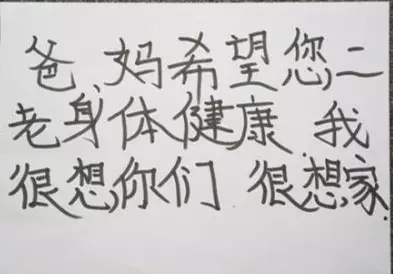 爸妈希望您二
老身体健康 我
很想你们 很想家